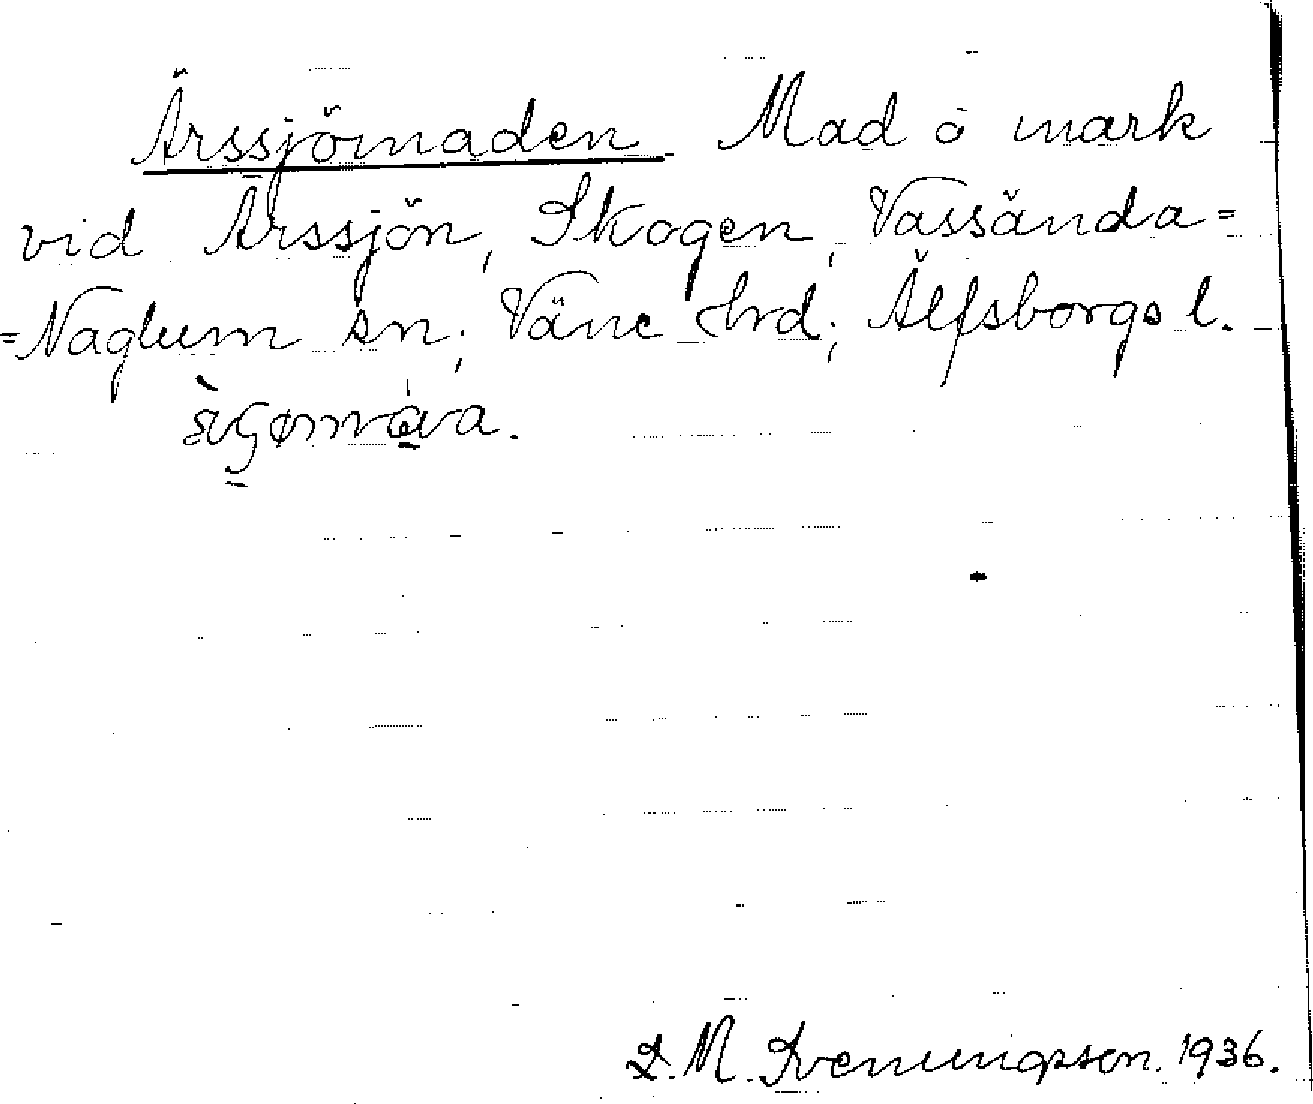 Ärssjömaden Mad å mark
vid Ärssjön, Skogen, Vassända=
=Naglum sn; Väne hrd; Älfsborgs l.
D. M. Svenungsson. 1936.